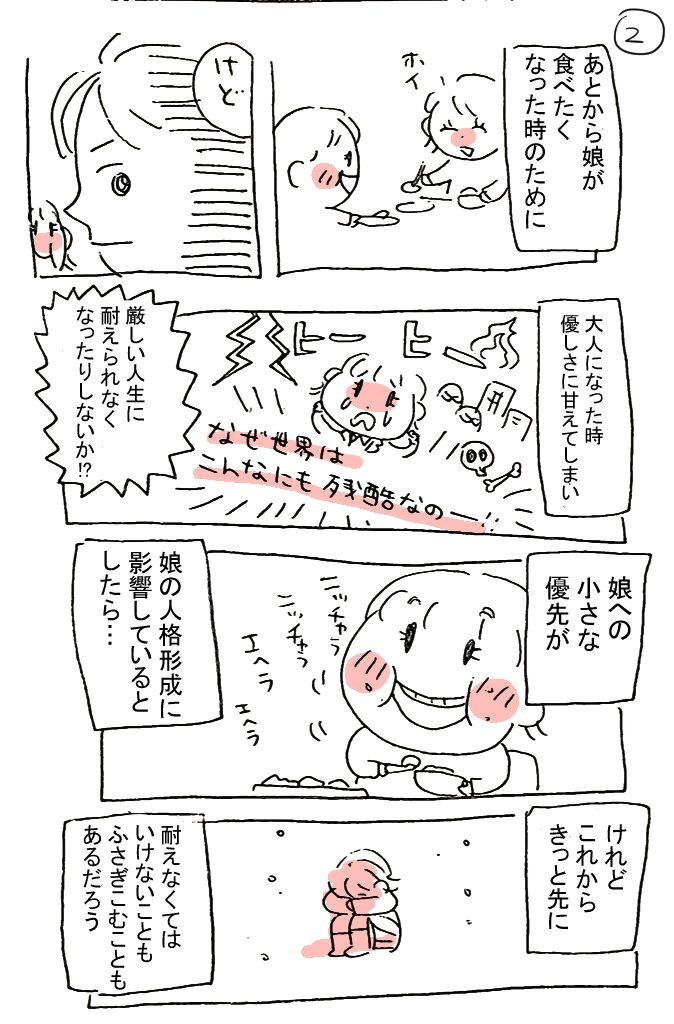 2
あとから娘が
食べたく
なった時のために
ホイ
けど
大人になった時
優しさに甘えてしまい
ヒーヒー
なぜ世界は
こんなにも残酷なのー!!
厳しい人生に
耐えられなく
なったりしないか!?
娘への
小さな
優先が
ニッチャう
ニッチャう
エヘラ
エヘラ
娘の人格形成に
影響していると
したら…
けれど
これから
きっと先に
耐えなくては
いけないことも
ふさぎこむことも
あるだろう